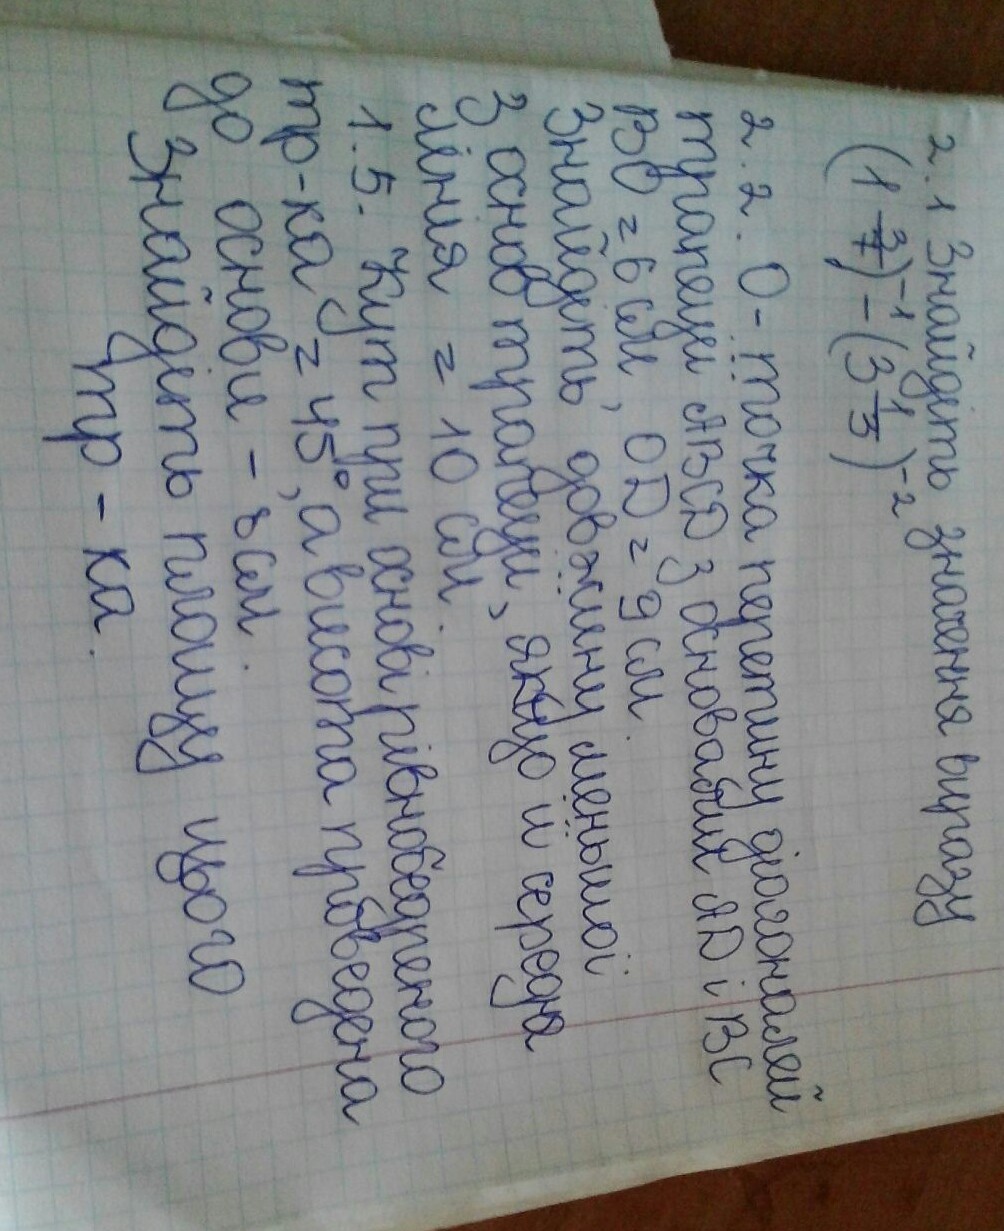 2.1 Знайдіть значення виразу
(1 3/7)^-1 - (3 1/3)^-2
2.2. О-точка перетину діогоналей
трапеції ABCD з основами AD і BC
BO = 6 см, OD = 9 см.
Знайдіть довжину меньшої
З основ трапеції, якщо її середня
лінія = 10 см.
1.5. Кут при основі рівнобедреного
тр-ка = 45°, а висота проведена
до основи - 8 см.
Знайдіть площу цього
тр-ка.